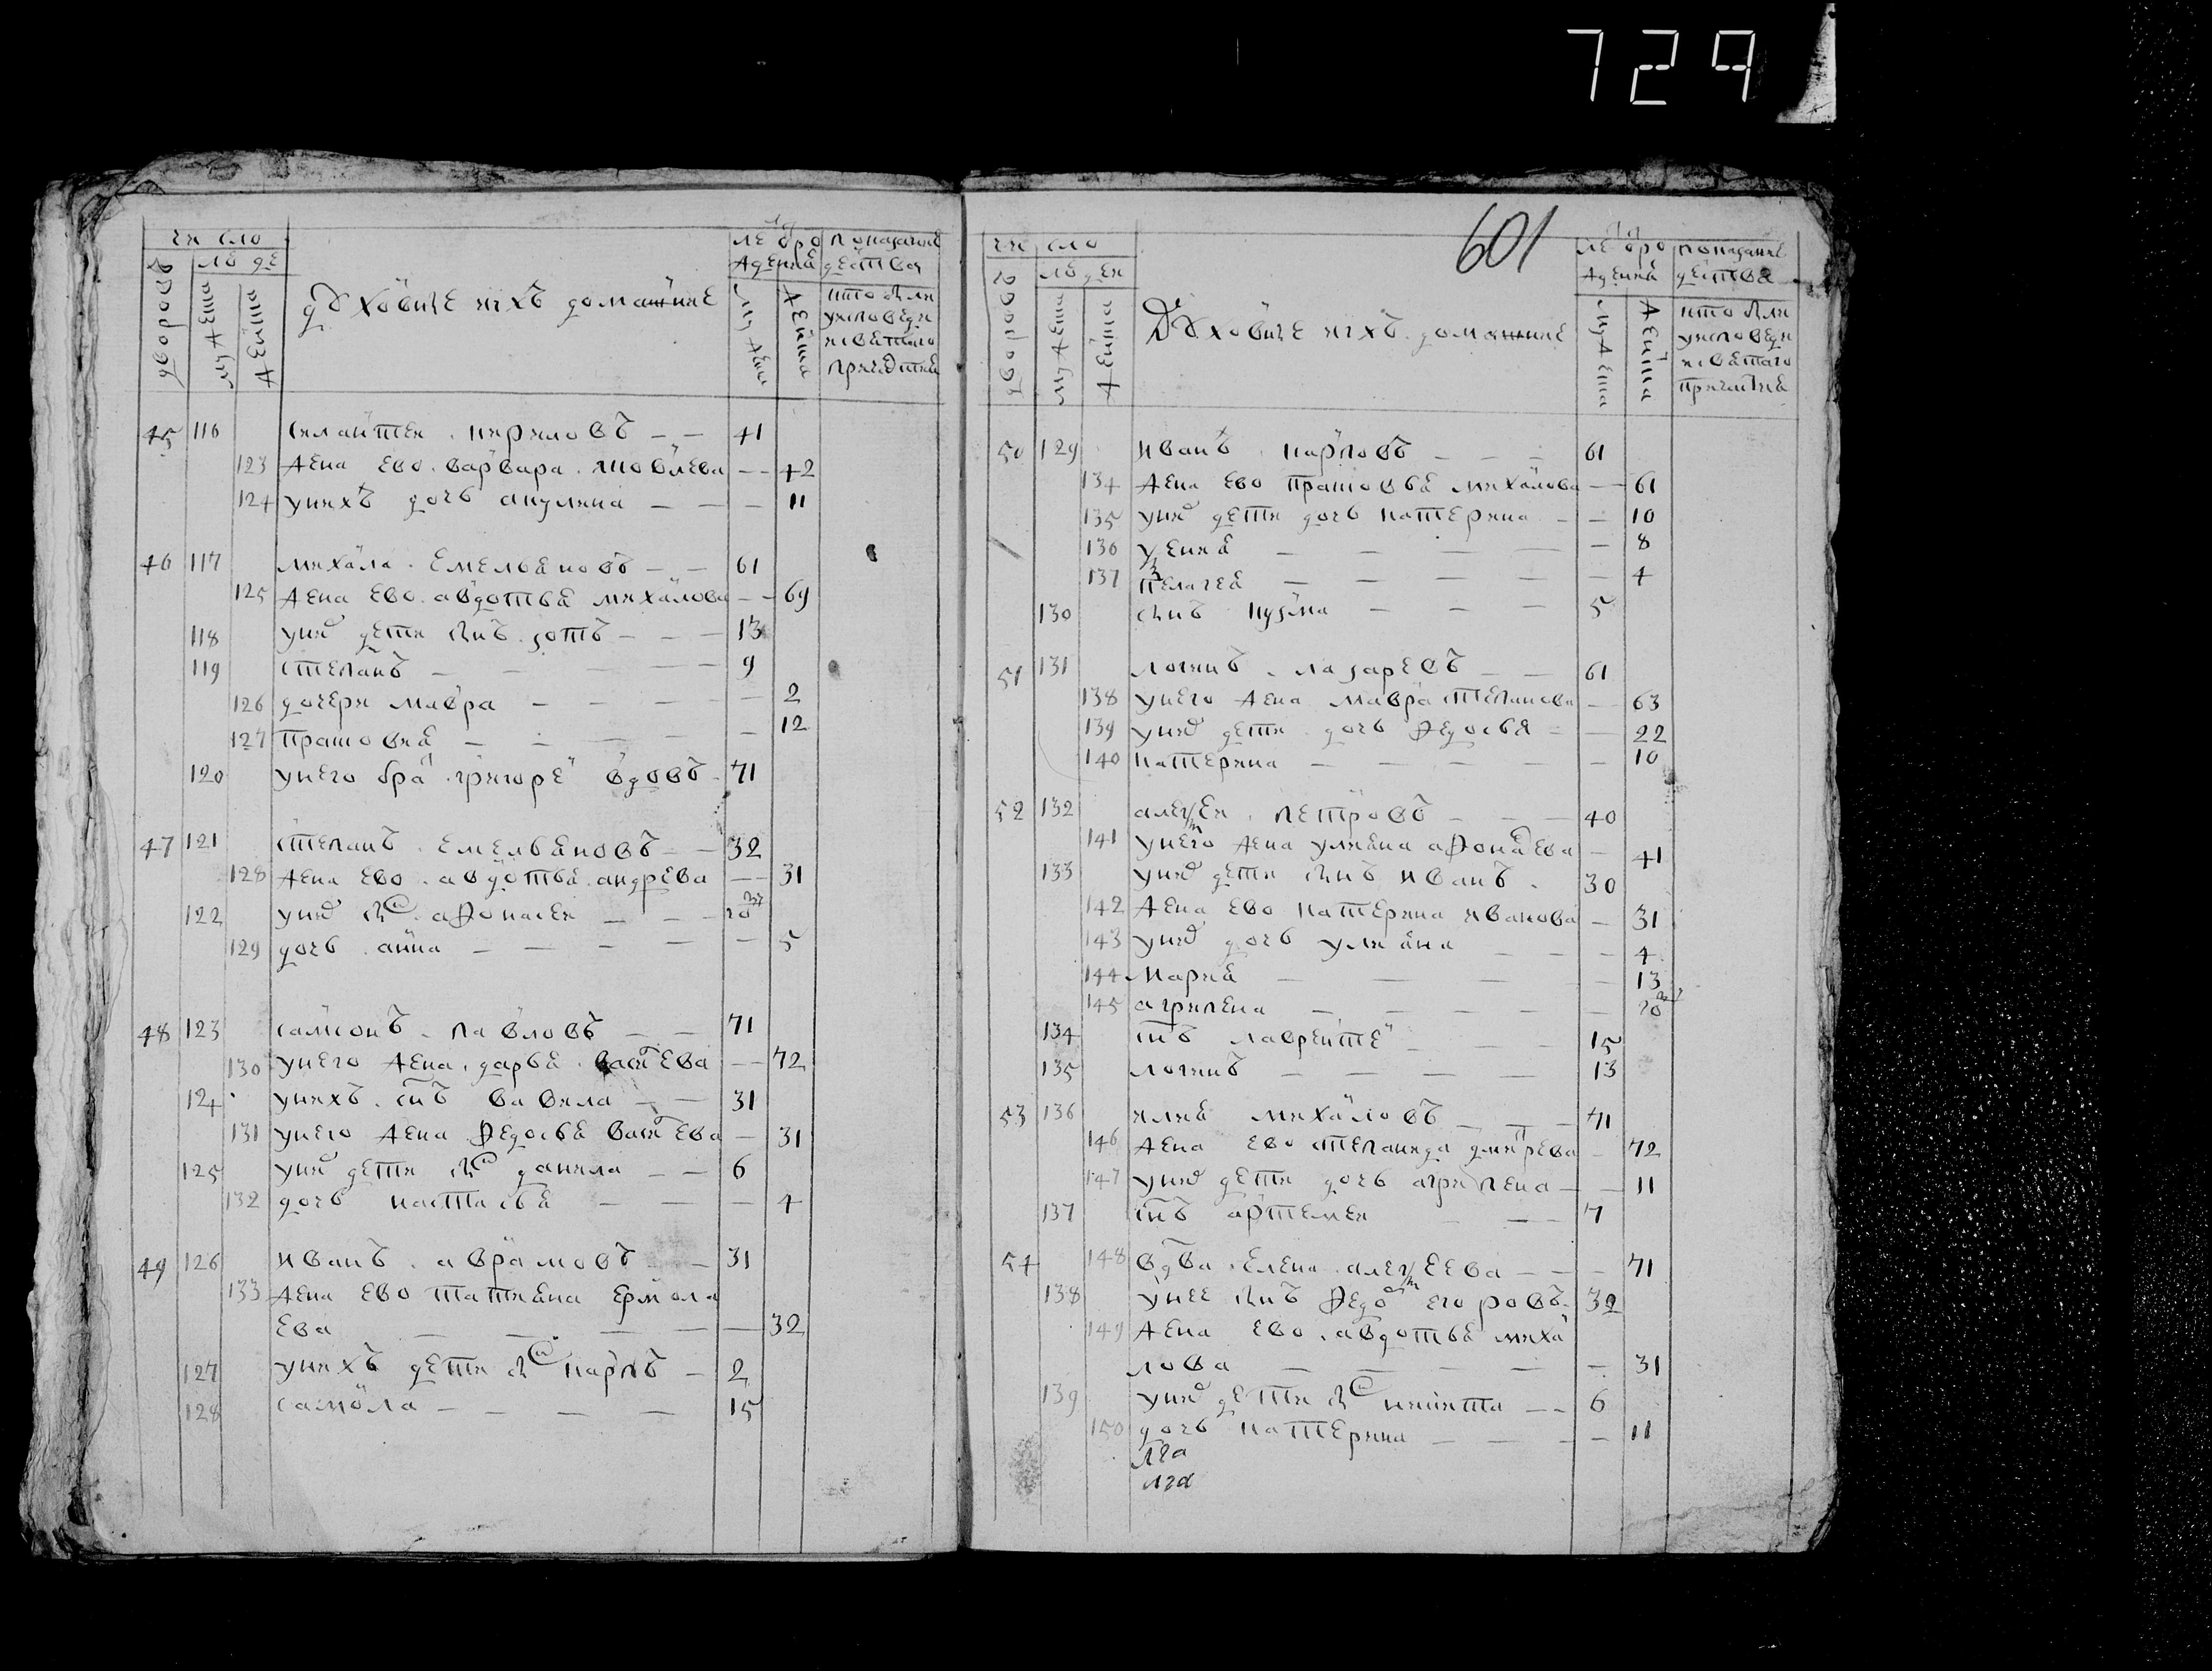 729
чи сло
лю де
дворовъ
мужеска
женска
дꙋховные ихъ домашние
лета о ро
ждения
мужеска
женска
показание
действа
кто был
у исповеди
и святаго
причастия
45 116 силантеи кириловъ — — 41
123 жена ево варвара яковлева — — 42
124 у нихъ дочь акулина — — — 11
46 117 михаила емельяновъ — — 61
125 жена ево авдотья михаилова — — 69
118 у них дети сынъ зотъ — — — 13
119 степанъ — — — — 9
126 дочери мавра — — — — 2
127 прасковия — — — — — 12
120 у него братъ григорей вдовъ 71
47 121 степанъ емельяновъ — — 32
128 жена ево авдотья андреева — — 31
122 у них сынъ афонасеи — — — 20
129 дочь анна — — — — — 5
48 123 самсонъ павловъ — — 71
130 у него жена дарья васильева — — 72
124 у нихъ сынъ вавила — — 31
131 у него жена федосья васильева — 31
125 у них дети сынъ данила — — 6
132 дочь настасья — — — 4
49 126 иванъ аврамовъ — 31
133 жена ево татияна ермола
ева — — — — — 32
127 у нихъ дети сынъ карпъ — 2
128 самоила — — — — 15
601
чи сло
людеи
дворовъ
мужеска
женска
Дꙋховные ихъ домашние
лета о ро
ждения
мужеска
женска
показание
действа
кто был
у исповеди
и святаго
причастия
50 129 иванъ карповъ — — — 61
134 жена ево прасковья михаилова — — 61
135 у них дети дочь катерина — — 10
136 ксения — — — — — 8
137 пелагея — — — — — 4
130 сынъ кузма — — — 5
51 131 логинъ лазаревъ — — 61
138 у него жена мавра степанова — 63
139 у них дети дочь федосья — — 22
140 катерина — — — — — 10
52 132 алексеи петровъ — — — 40
141 у него жена улияна афонасева — 41
133 у них дети сынъ иванъ 30
142 жена ево катерина иванова — 31
143 у них дочь улияна — — — 4
144 мария — — — — 13
145 агрипена — — — — — 20
134 сынъ лаврентей — — — 15
135 логинъ — — — — 13
53 136 илия михаиловъ — — — 71
146 жена ево степанида дмитрева — 72
147 у них дети дочь агрипена — — 11
137 сынъ артемеи — — — 7
54 148 вдова елена алексеева — — — 71
138 у нее сынъ федоръ егоровъ 32
149 жена ево авдотья михаи
лова — — — — — 31
139 у них дети сынъ никита — — 6
150 дочь катерина — — — — 11